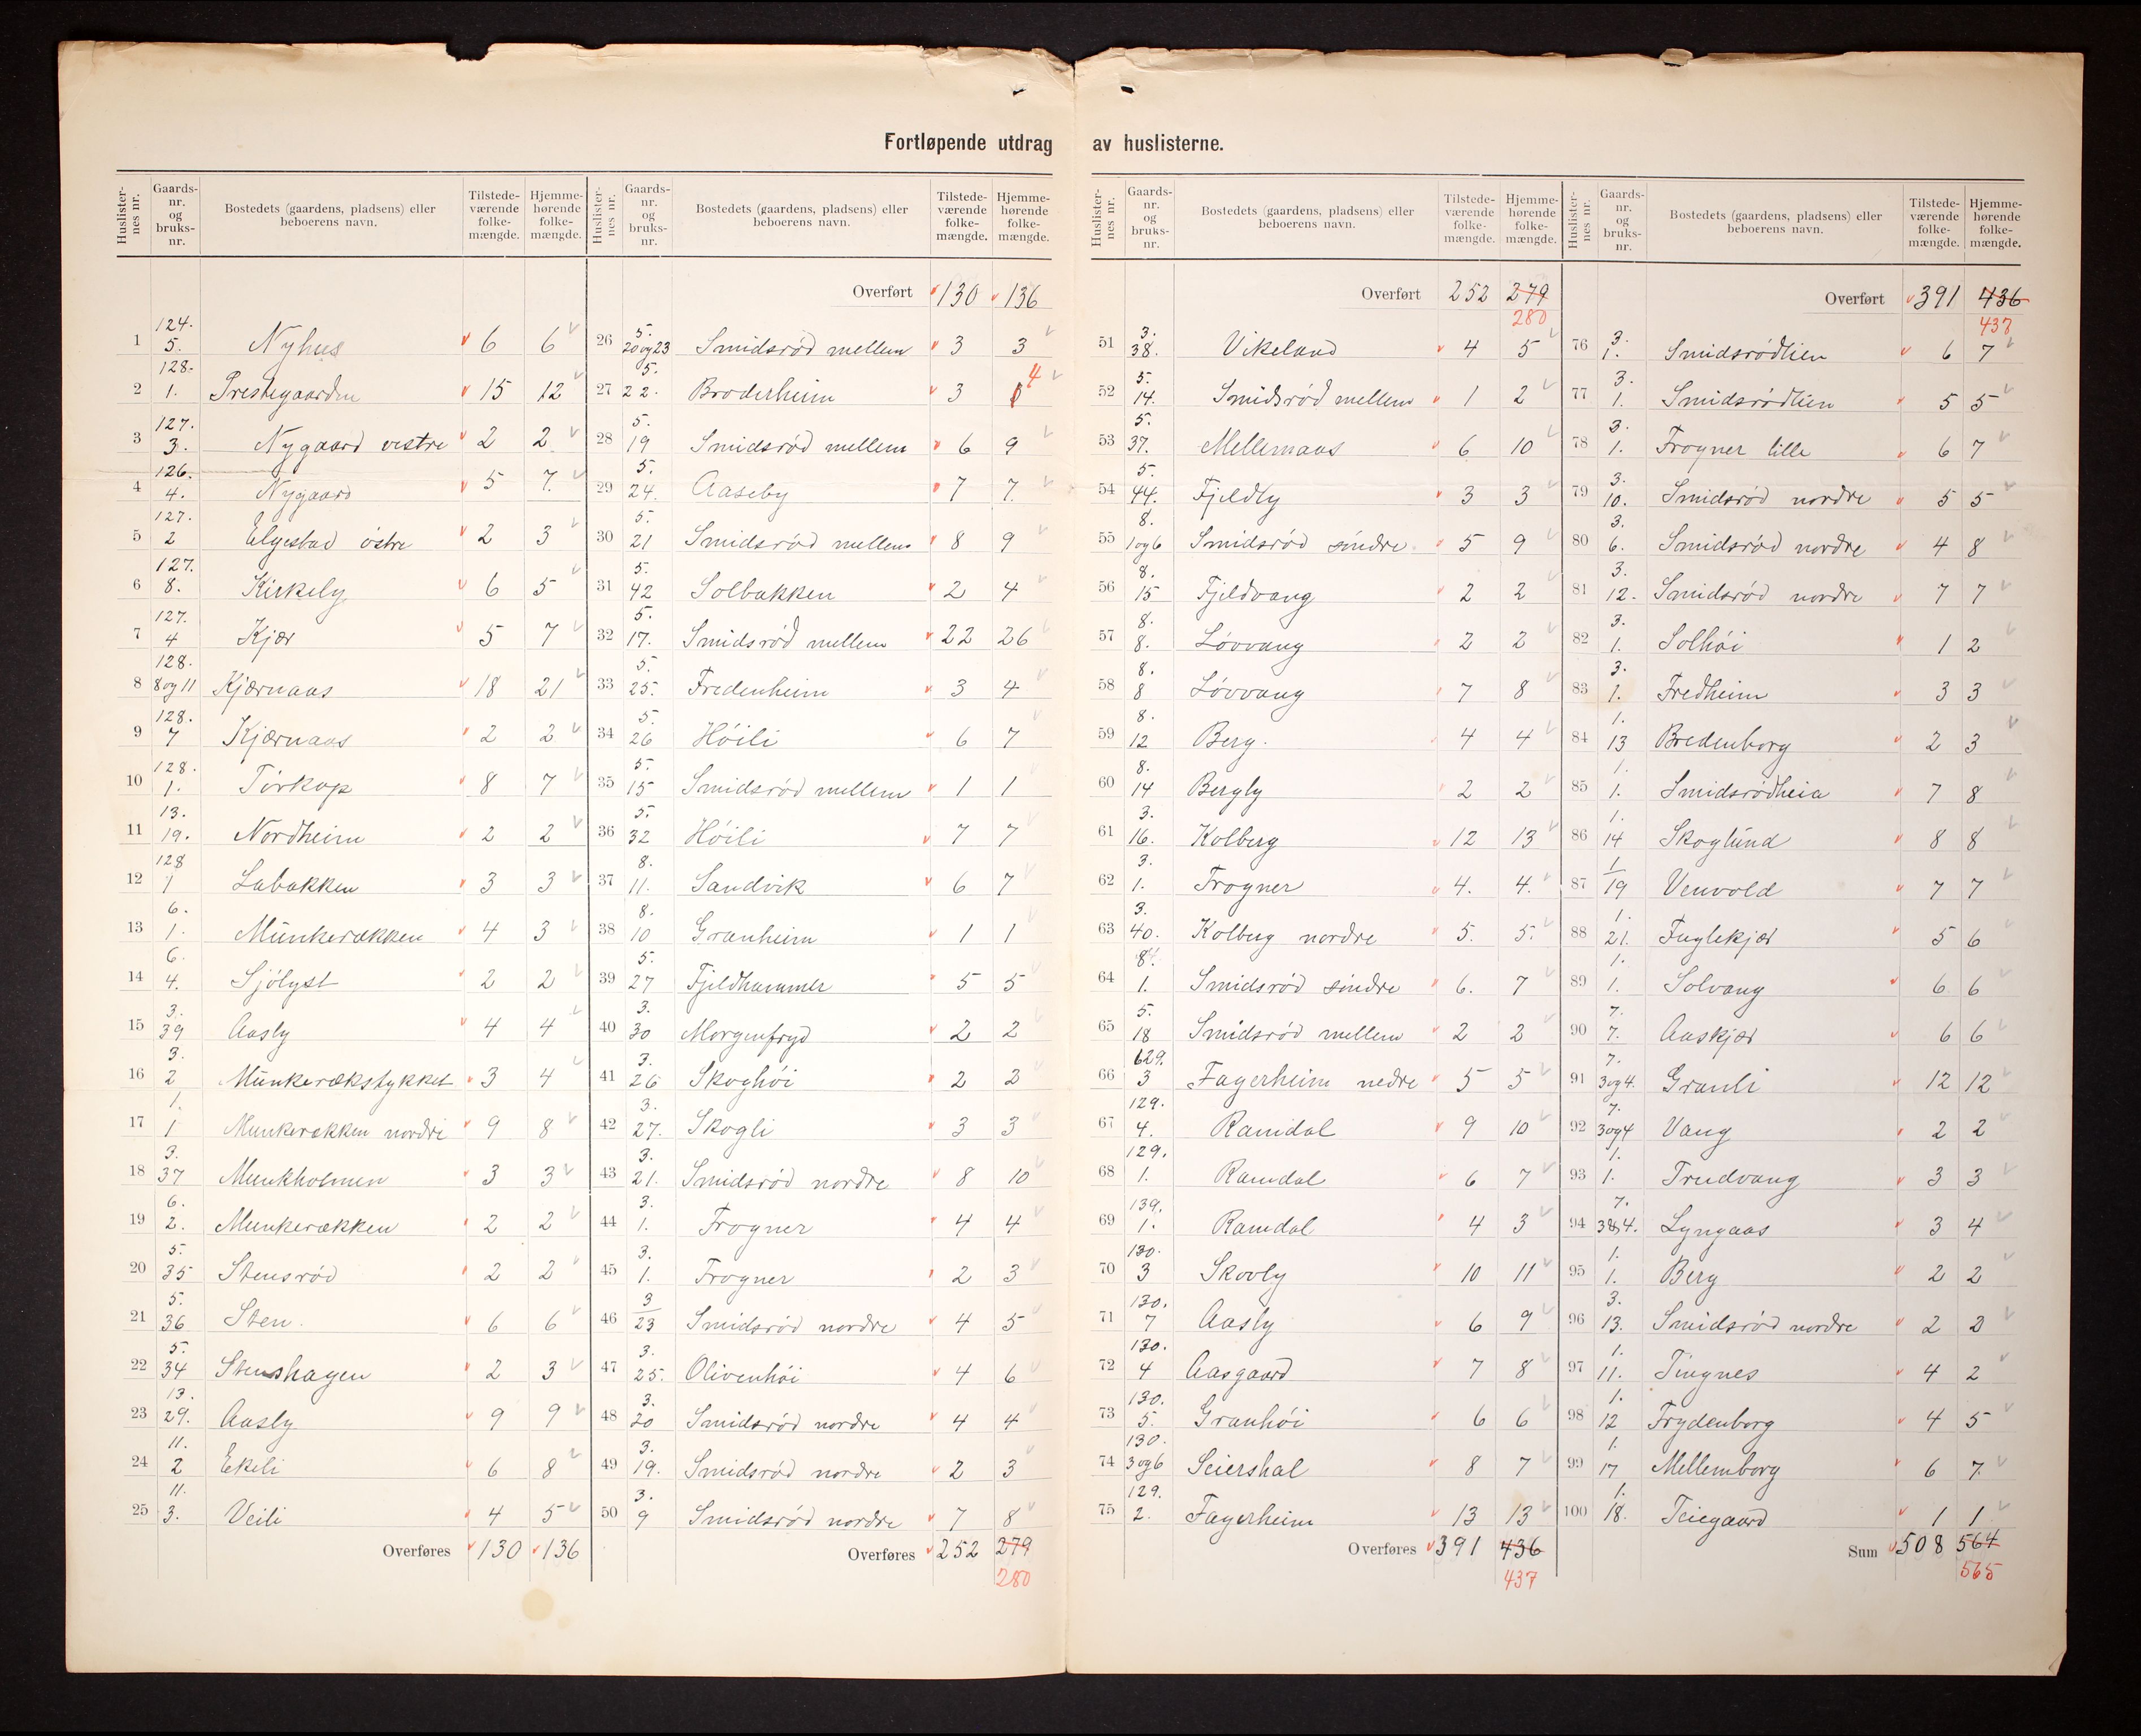 Fortløpende utdrag av huslisterne.
Huslister-nes nr. Gaards-nr. og bruks-nr. Bostedets (gaardens, pladsens) eller beboerens navn. Tilstede-værende folke-mængde. Hjemme-hørende folke-mængde.
1 124. 5. Nyhus 6 6
2 128. 1. Prestegaarden 15 12
3 127. 3. Nygaard vestre 2 2
4 126. 4. Nygaard 5 7.
5 127. 2 Elgestad østre 2 3
6 127. 8. Kirkely 6 5
7 127. 4 Kjær 5 7
8 128. 8og11 Kjærnaas 18 21
9 128. 7 Kjærnaas 2 2
10 128. 1. Torkop 8 7
11 13. 19. Nordheim 2 2
12 128 1 Labakken 3 3
13 6. 1. Munkerækken 4 3
14 6. 4. Sjölyst 2 2
15 3. 39 Aasly 4 4
16 3. 2 Munkerækstykket 3 4
17 1. 1 Munkerækken nordre 9 8
18 3. 37 Munkholmen 3 3
19 6. 2. Munkerækken 2 2
20 5. 35 Stensrød 2 2
21 5. 36 Sten. 6 6
22 5. 34 Stenshagen 2 3
23 13. 29. Aasly 9 9
24 11. 2 Ekeli 6 8
25 11. 3. Veili 4 5
Overføres 130 136
Huslister-nes nr. Gaards-nr. og bruks-nr. Bostedets (gaardens, pladsens) eller beboerens navn. Tilstede-værende folke-mængde. Hjemme-hørende folke-mængde.
Overført 130 136
26 5. 20og23 Smidsrød mellem 3 3
27 5. 22. Broderheim 3 4
28 5. 19 Smidsrød mellem 6 9
29 5. 24. Aaseby 7 7.
30 5. 21 Smidsrød mellem 8 9
31 5. 42 Solbakken 2 4
32 5. 17. Smidsrød mellem 22 26
33 5. 25. Fredenheim 3 4
34 5. 26 Høili 6 7
35 5. 15 Smidsrød mellem 1 1
36 5. 32 Høili 7 7
37 8. 11. Sandvik 6 7
38 8. 10 Granheim 1 1
39 5. 27 Fjeldhammer 5 5
40 3. 30 Morgenfryd 2 2
41 3. 26 Skoghøi 2 2
42 3. 27. Skogli 3 3
43 3. 21. Smidsrød nordre 8 10
44 3. 1. Frogner 4 4
45 3. 1. Frogner 2 3
46 3 23 Smidsrød nordre 4 5
47 3. 25. Olivenhöi 4 6
48 3. 20 Smidsrød nordre 4 4
49 3. 19. Smidsrød nordre 2 3
50 3. 9 Smidsrød nordre 7 8
Overføres 252 279
280
Huslister-nes nr. Gaards-nr. og bruks-nr. Bostedets (gaardens, pladsens) eller beboerens navn. Tilstede-værende folke-mængde. Hjemme-hørende folke-mængde.
Overført 252 279
280
51 3. 38. Vikeland 4 5
52 5. 14. Smidsrød mellem 1 2
53 5. 37. Mellemaas 6 10
54 5. 44. Fjeldly 3 3
55 8. 1og6 Smidsrød søndre 5 9
56 8. 15 Fjeldvang 2 2
57 8. 8. Løvvang 2 2
58 8. 8 Løvvang 7 8
59 8. 12 Berg. 4 4
60 8. 14 Bergly 2 2
61 3. 16. Kolberg 12 13
62 3. 1. Frogner 4. 4.
63 3. 40. Kolberg nordre 5. 5.
64 8. 1. Smidsrød søndre 6. 7
65 5. 18 Smidsrød mellem 2 2
66 129. 3 Fagerheim nedre 5 5
67 129. 4. Ramdal 9 10
68 129. 1. Ramdal 6 7
69 139. 1. Ramdal 4 3
70 130. 3 Skovly 10 11
71 130. 7 Aasly 6 9
72 130. 4 Aasgaard 7 8
73 130. 5. Granhöi 6 6
74 130. 3og6 Seiershal 8 7
75 129. 2. Fagerheim 13 13
Overføres 391 436
437
Huslister-nes nr. Gaards-nr. og bruks-nr. Bostedets (gaardens, pladsens) eller beboerens navn. Tilstede-værende folke-mængde. Hjemme-hørende folke-mængde.
Overført 391 436
437
76 3. 1. Smidsrødlien 6 7
77 3. 1. Smidsrødlien 5 5
78 3. 1. Frogner lille 6 7
79 3. 10. Smidsrød nordre 5 5
80 3. 6. Smidsrød nordre 4 8
81 3. 12. Smidsrød nordre 7 7
82 3. 1. Solhöi 1 2
83 3. 1. Fredheim 3 3
84 1. 13 Bredenborg 2 3
85 1. 1. Smidsrødheia 7 8
86 1. 14 Skoglund 8 8
87 1 19 Venvold 7 7
88 1. 21. Fuglekjær 5 6
89 1. 1. Solvang 6 6
90 7. 7. Aaskjær 6 6
91 7. 3og4. Granli 12 12
92 7. 3og4 Vang 2 2
93 1. 1. Trudvang 3 3
94 7. 3&4. Lyngaas 3 4
95 1. 1. Berg 2 2
96 3. 13. Smidsrød nordre 2 2
97 1. 11. Tingnes 4 2
98 1. 12 Frydenborg 4 5
99 1. 17 Mellemborg 6 7.
100 1. 18. Teiegaard 1 1
Sum 508 564
565